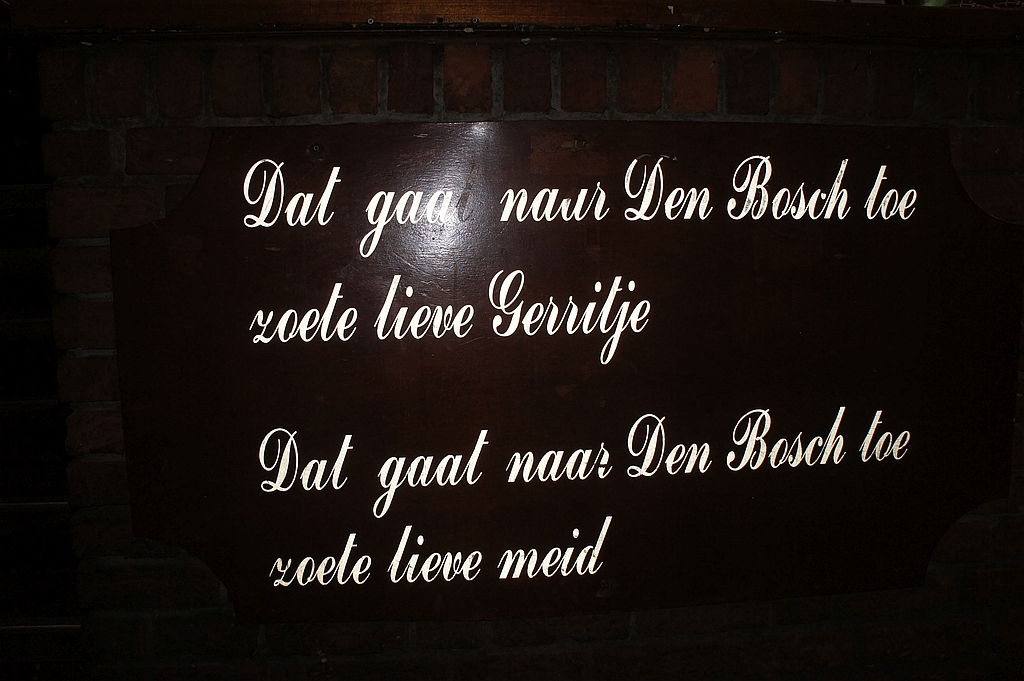 Dat gaat naar Den Bosch toe
zoete lieve Gerritje
Dat gaat naar Den Bosch toe
zoete lieve meid